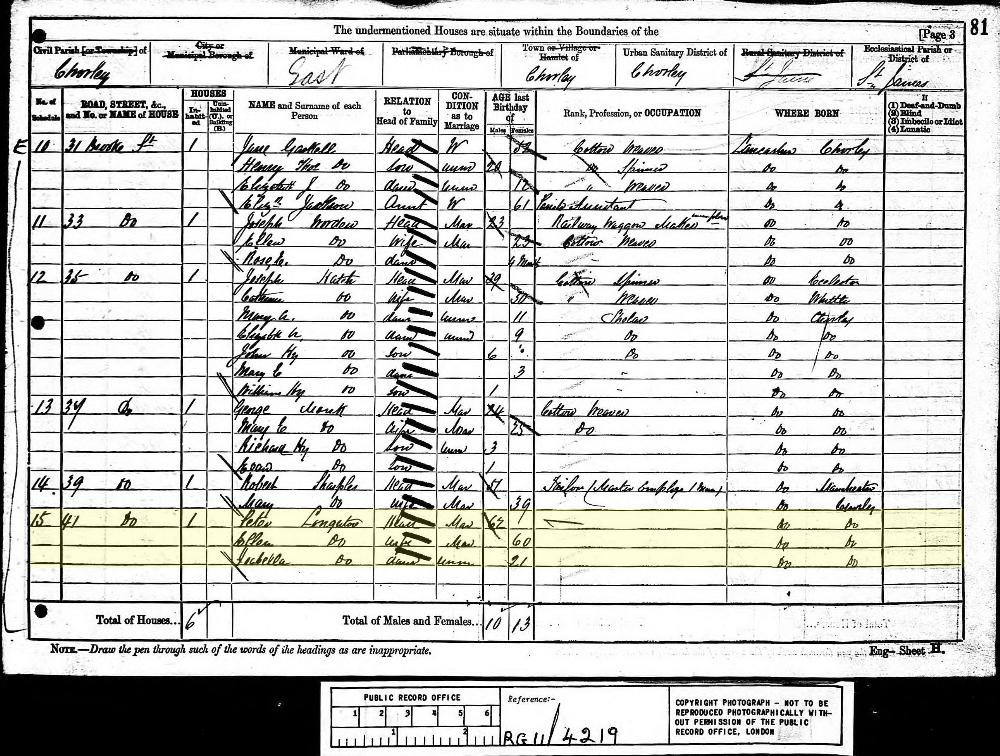 The undermentioned Houses are situate within the Boundaries of the
[Page 3
81
Civil Parish [or Township] of
City or Municipal Borough of
Municipal Ward of
Parliamentary Borough of
Town or Village or Hamlet of
Urban Sanitary District of
Rural Sanitary District of
Ecclesiastical Parish or District of
Chorley East Chorley Chorley St James St James
No. of Schedule
ROAD, STREET, &c., and No. or NAME of HOUSE
HOUSES
In-habit-ed
Unin-habited (U.), or Building (B.)
NAME and Surname of each Person
RELATION to Head of Family
CON-DITION as to Marriage
AGE last Birthday of
Males Females
Rank, Profession, or OCCUPATION
WHERE BORN
If
(1) Deaf-and-Dumb
(2) Blind
(3) Imbecile or Idiot
(4) Lunatic
10 31 Brooke St 1 Jane Head W Cotton Weaver Lancashire Chorley
Henry Do Son unm 20 Spinner Do Do
Elizabeth J Do daur unm " Weaver Do Do
Aunt W 61 Do
11 33 Do 1 Joseph Head Mar 23 Railway Waggon Maker Do Do
Ellen Do Wife Mar 23 Cotton Weaver Do Do
Do daur Do Do
12 35 Do 1 Joseph Head Mar 39 Cotton Spinner Do Eccleston
Do Wife Mar 30 " Weaver Do Whittle
Mary A. Do daur unm 11 Scholar Do Chorley
Elizabth Do daur unm 9 Do Do Do
John Hy Do Son 6 Do Do Do
Mary E Do daur 3 Do Do
William Hy Do Son 1 Do Do
13 37 Do 1 George Monk Head Mar 24 Cotton Weaver Do Do
Mary E Do Wife Mar 25 Do Do Do
Richard Hy Do Son unm 3 Do Do
Do Son 1 Do Do
14 39 Do 1 Robert Sharples Head Mar 51 Tailor (Master Do Manchester
Mary Do Wife Mar 39 Do Chorley
15 41 Do 1 Peter Longton Head Mar Do Do
Ellen Do Wife Mar 60 Do Do
Isabella Do daur unm 21 Do Do
Total of Houses... 6
Total of Males and Females... 10 13
NOTE.—Draw the pen through such of the words of the headings as are inappropriate.
Eng— Sheet H.
PUBLIC RECORD OFFICE
1 2 3 4 5 6
1 2
Reference:-
RG 11/4219
COPYRIGHT PHOTOGRAPH - NOT TO BE
REPRODUCED PHOTOGRAPHICALLY WITH-
OUT PERMISSION OF THE PUBLIC
RECORD OFFICE, LONDON